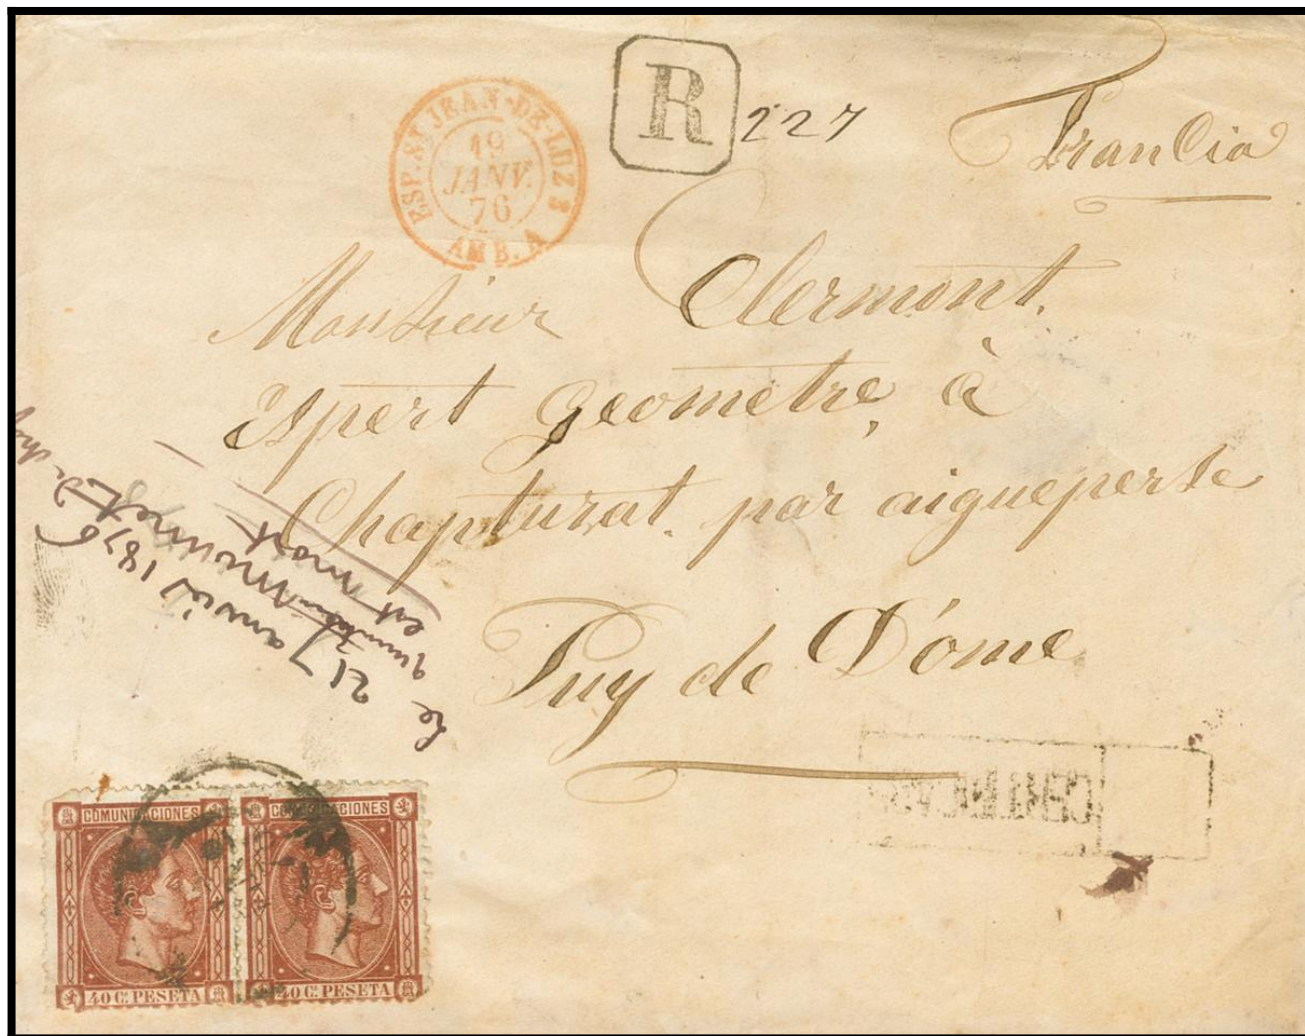 ESP. St JEAN-DE-LUZ 3
19
JANV.
76
AMB. A
R
227
Francia
Monsieur Clermont.
Espert geometre, à
Chapturat. par aigueperse
Puy de D'ome
le 21 janvier 1876
est mort
CERTIFICADO
COMUNICACIONES
40 C. PESETA
COMUNICACIONES
40 C. PESETA